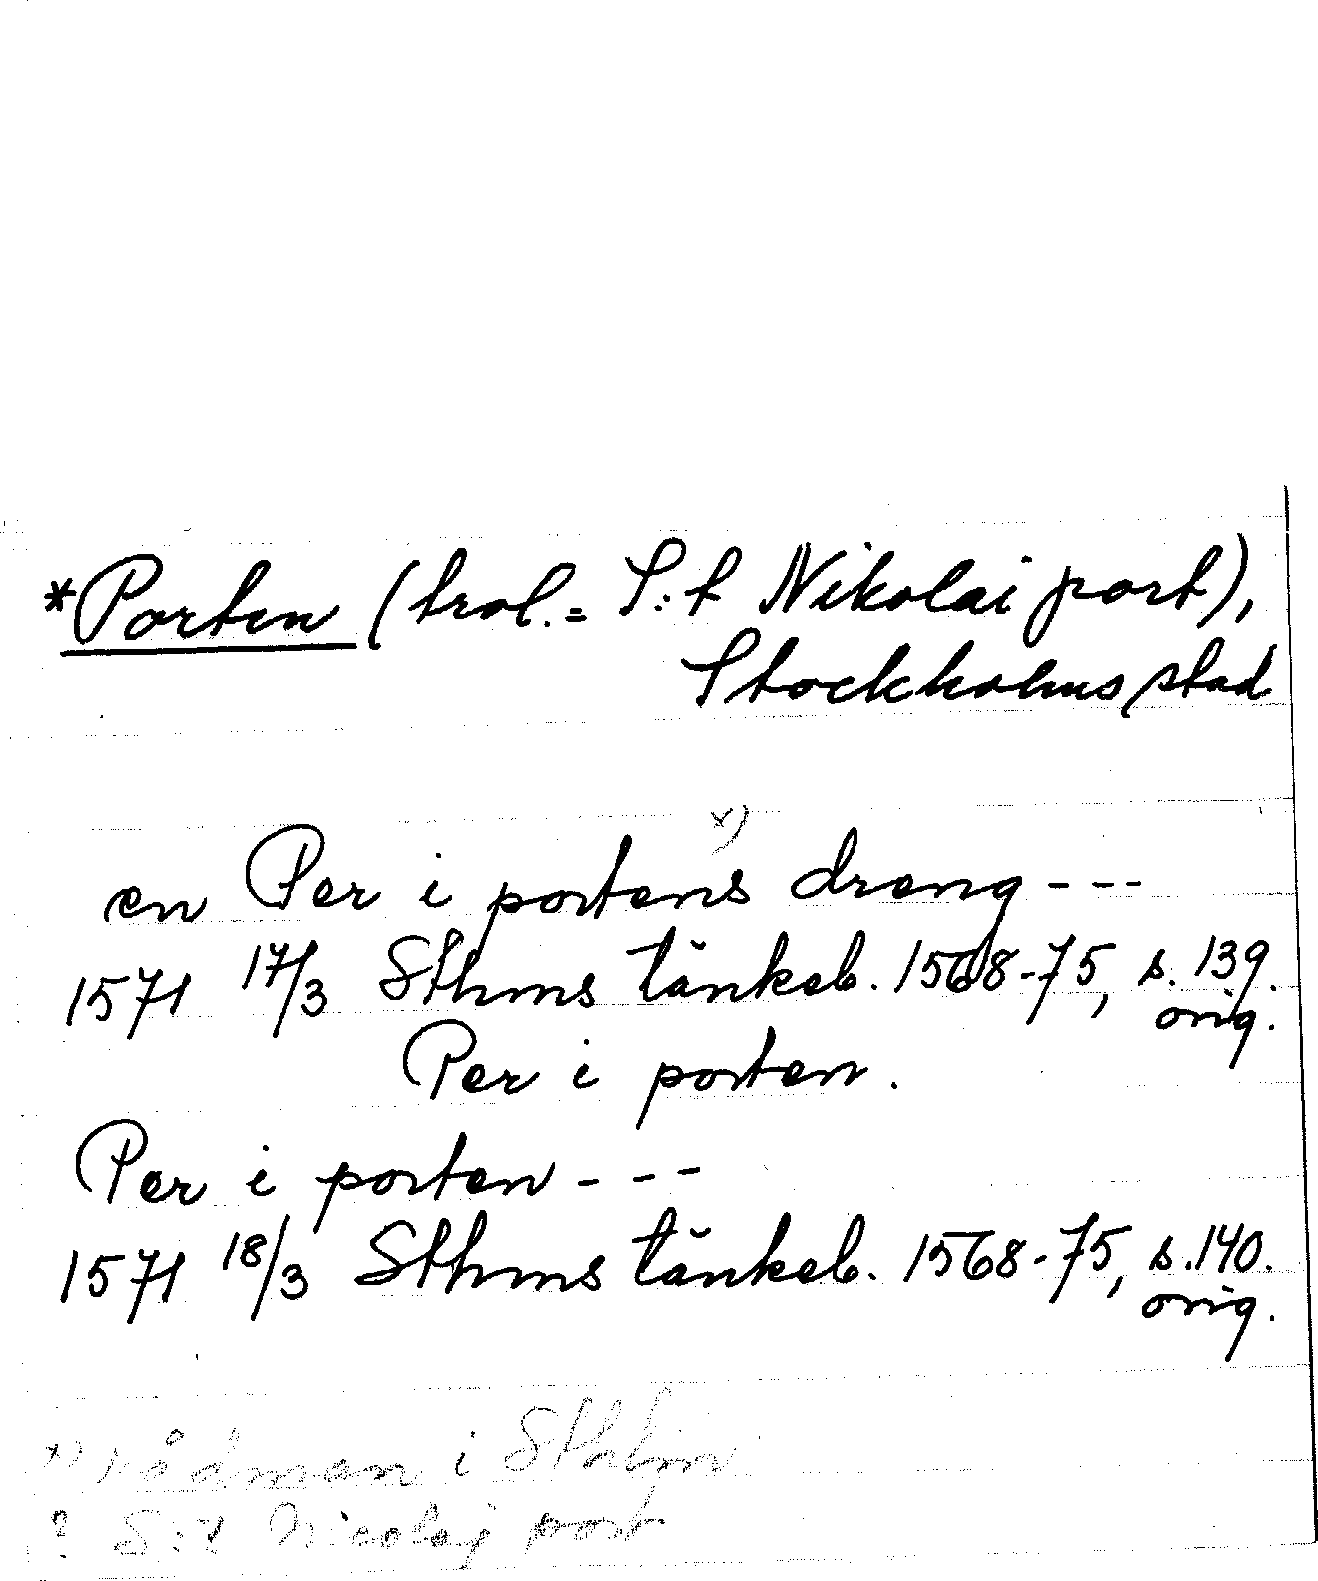 *Porten (trol. = S:t Nikolai port),
Stockholms stad
x)
en Per i portens dreng - - -
1571 17/3 Sthms tänkeb. 1568-75, s. 139.
orig.
Per i porten.
Per i porten - - -
1571 18/3 Sthms tänkeb. 1568-75, s. 140.
orig.
x) rådman i Sthlm
? S:t Nicolaj port